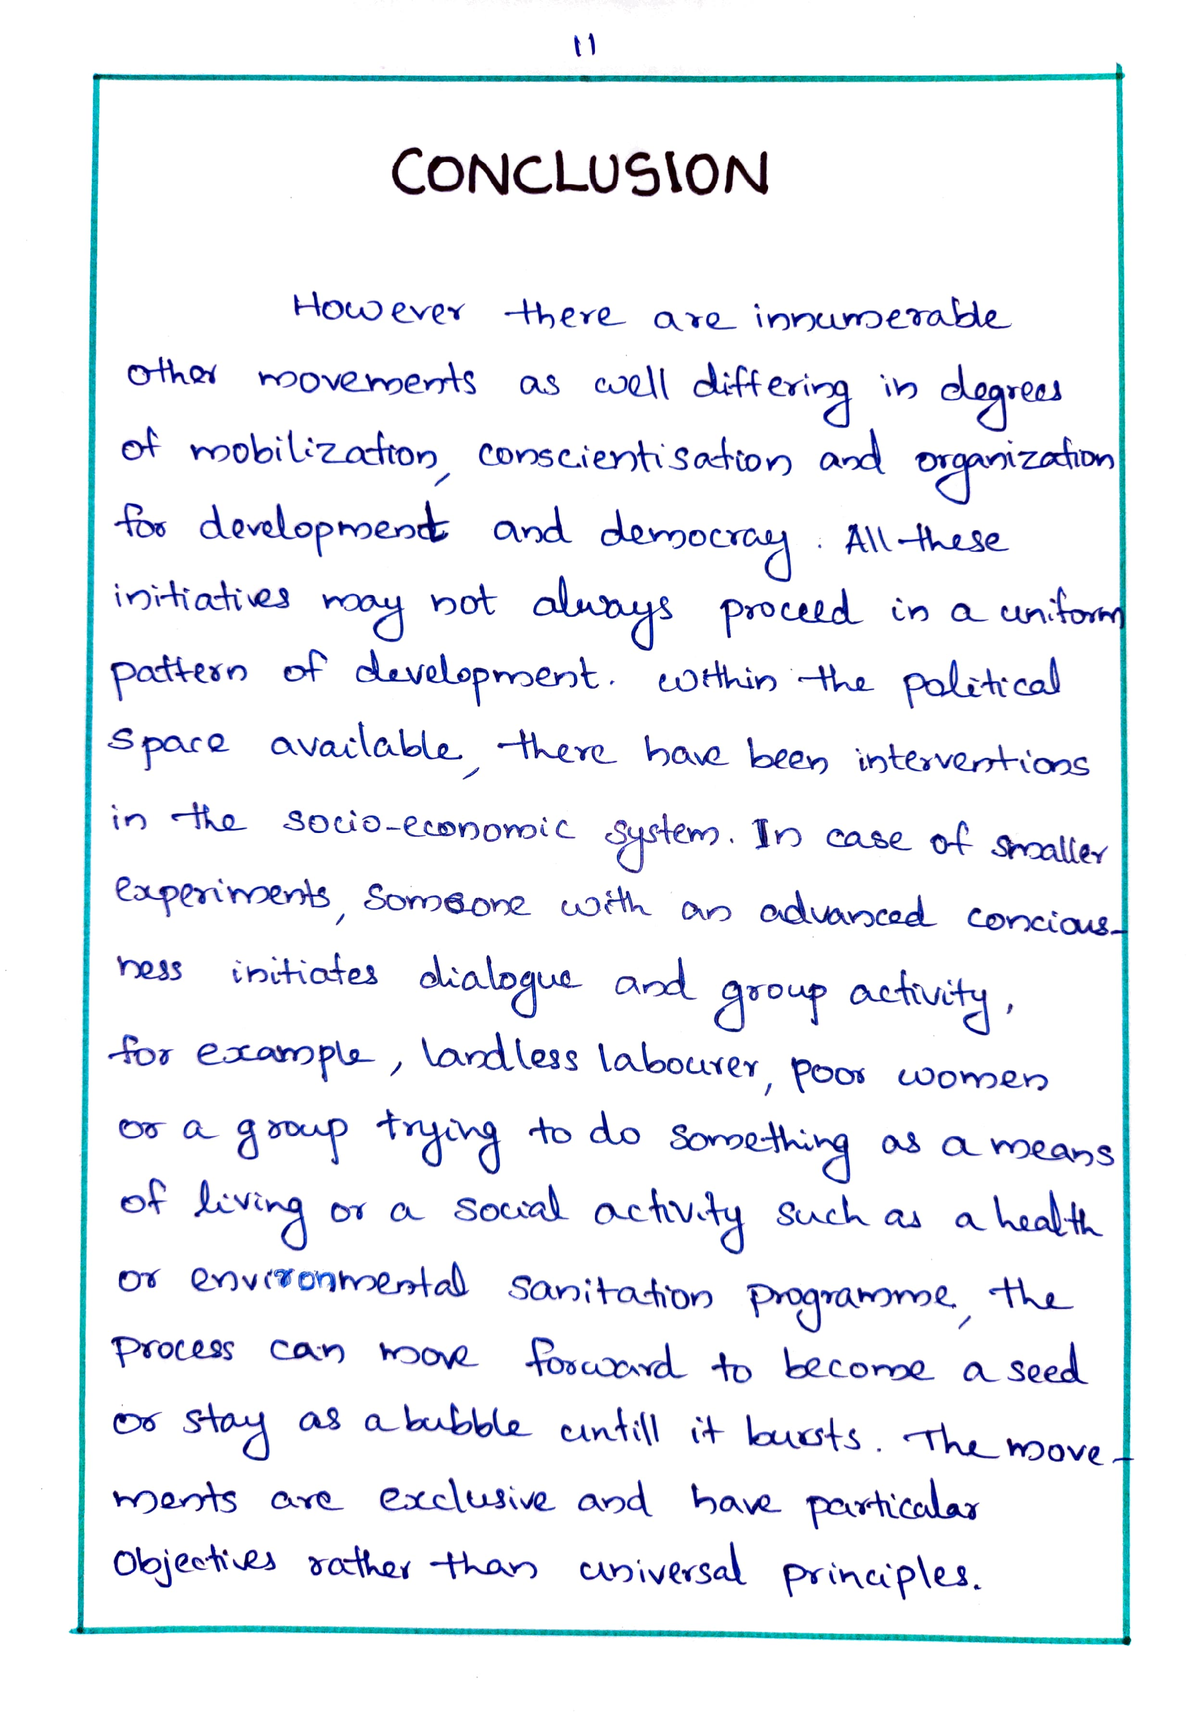 11
CONCLUSION
However there are innumerable
other movements as well differing in degrees
of mobilization, conscientisation and organization
for development and democray. All these
initiatives may not always proceed in a uniform
pattern of development. within the political
space available, there have been interventions
in the socio-economic system. In case of smaller
experiments, someone with an advanced concious-
ness initiates dialogue and group activity,
for example, landless labourer, poor women
or a group trying to do something as a means
of living or a social activity such as a health
or environmental sanitation programme, the
process can move forward to become a seed
or stay as a bubble untill it bursts. The move-
ments are exclusive and have particular
objectives rather than universal principles.